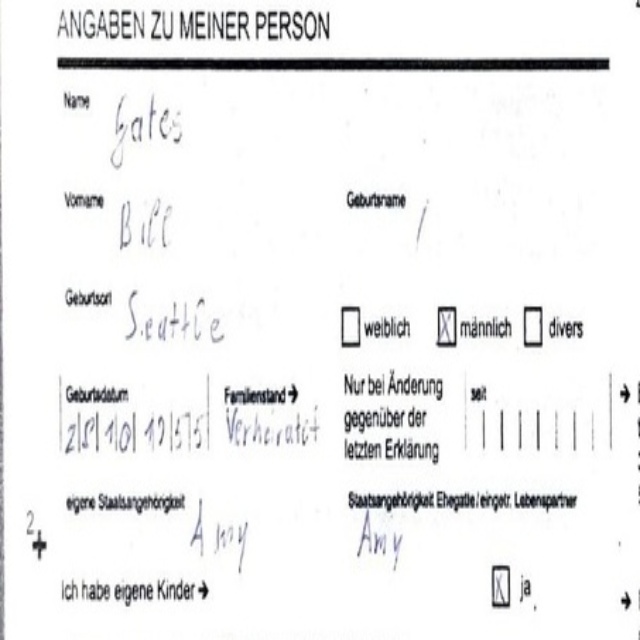 ANGABEN ZU MEINER PERSON
Name
Gates
Vorname
Bill
Geburtsname
/
Geburtsort
Seattle
weiblich
männlich
divers
Geburtsdatum
28101955
Familienstand →
Verheiratet
Nur bei Änderung
gegenüber der
letzten Erklärung
seit
eigene Staatsangehörigkeit
Amy
Staatsangehörigkeit Ehegatte/eingetr. Lebenspartner
Amy
2
Ich habe eigene Kinder →
ja